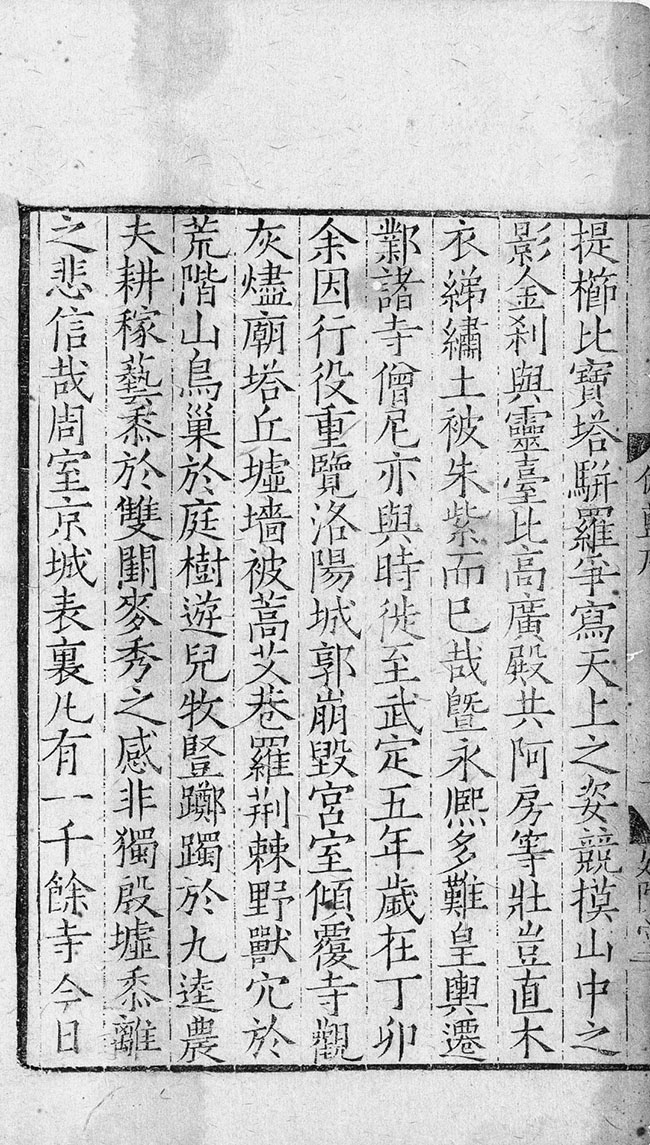 提櫛比寶塔駢羅爭寫天上之姿競摸山中之
影金刹與靈臺比高廣殿共阿房等壯豈直木
衣綈繡土被朱紫而已哉曁永熙多難皇輿遷
鄴諸寺僧尼亦與時徙至武定五年歲在丁卯
余因行役重覽洛陽城郭崩毀宮室傾覆寺觀
灰燼廟塔丘墟墻被蒿艾巷羅荆棘野獸穴於
荒階山鳥巢於庭樹遊兒牧豎躑躅於九逵農
夫耕稼藝黍於雙闕麥秀之感非獨殷墟黍離
之悲信哉周室京城表裏凡有一千餘寺今日